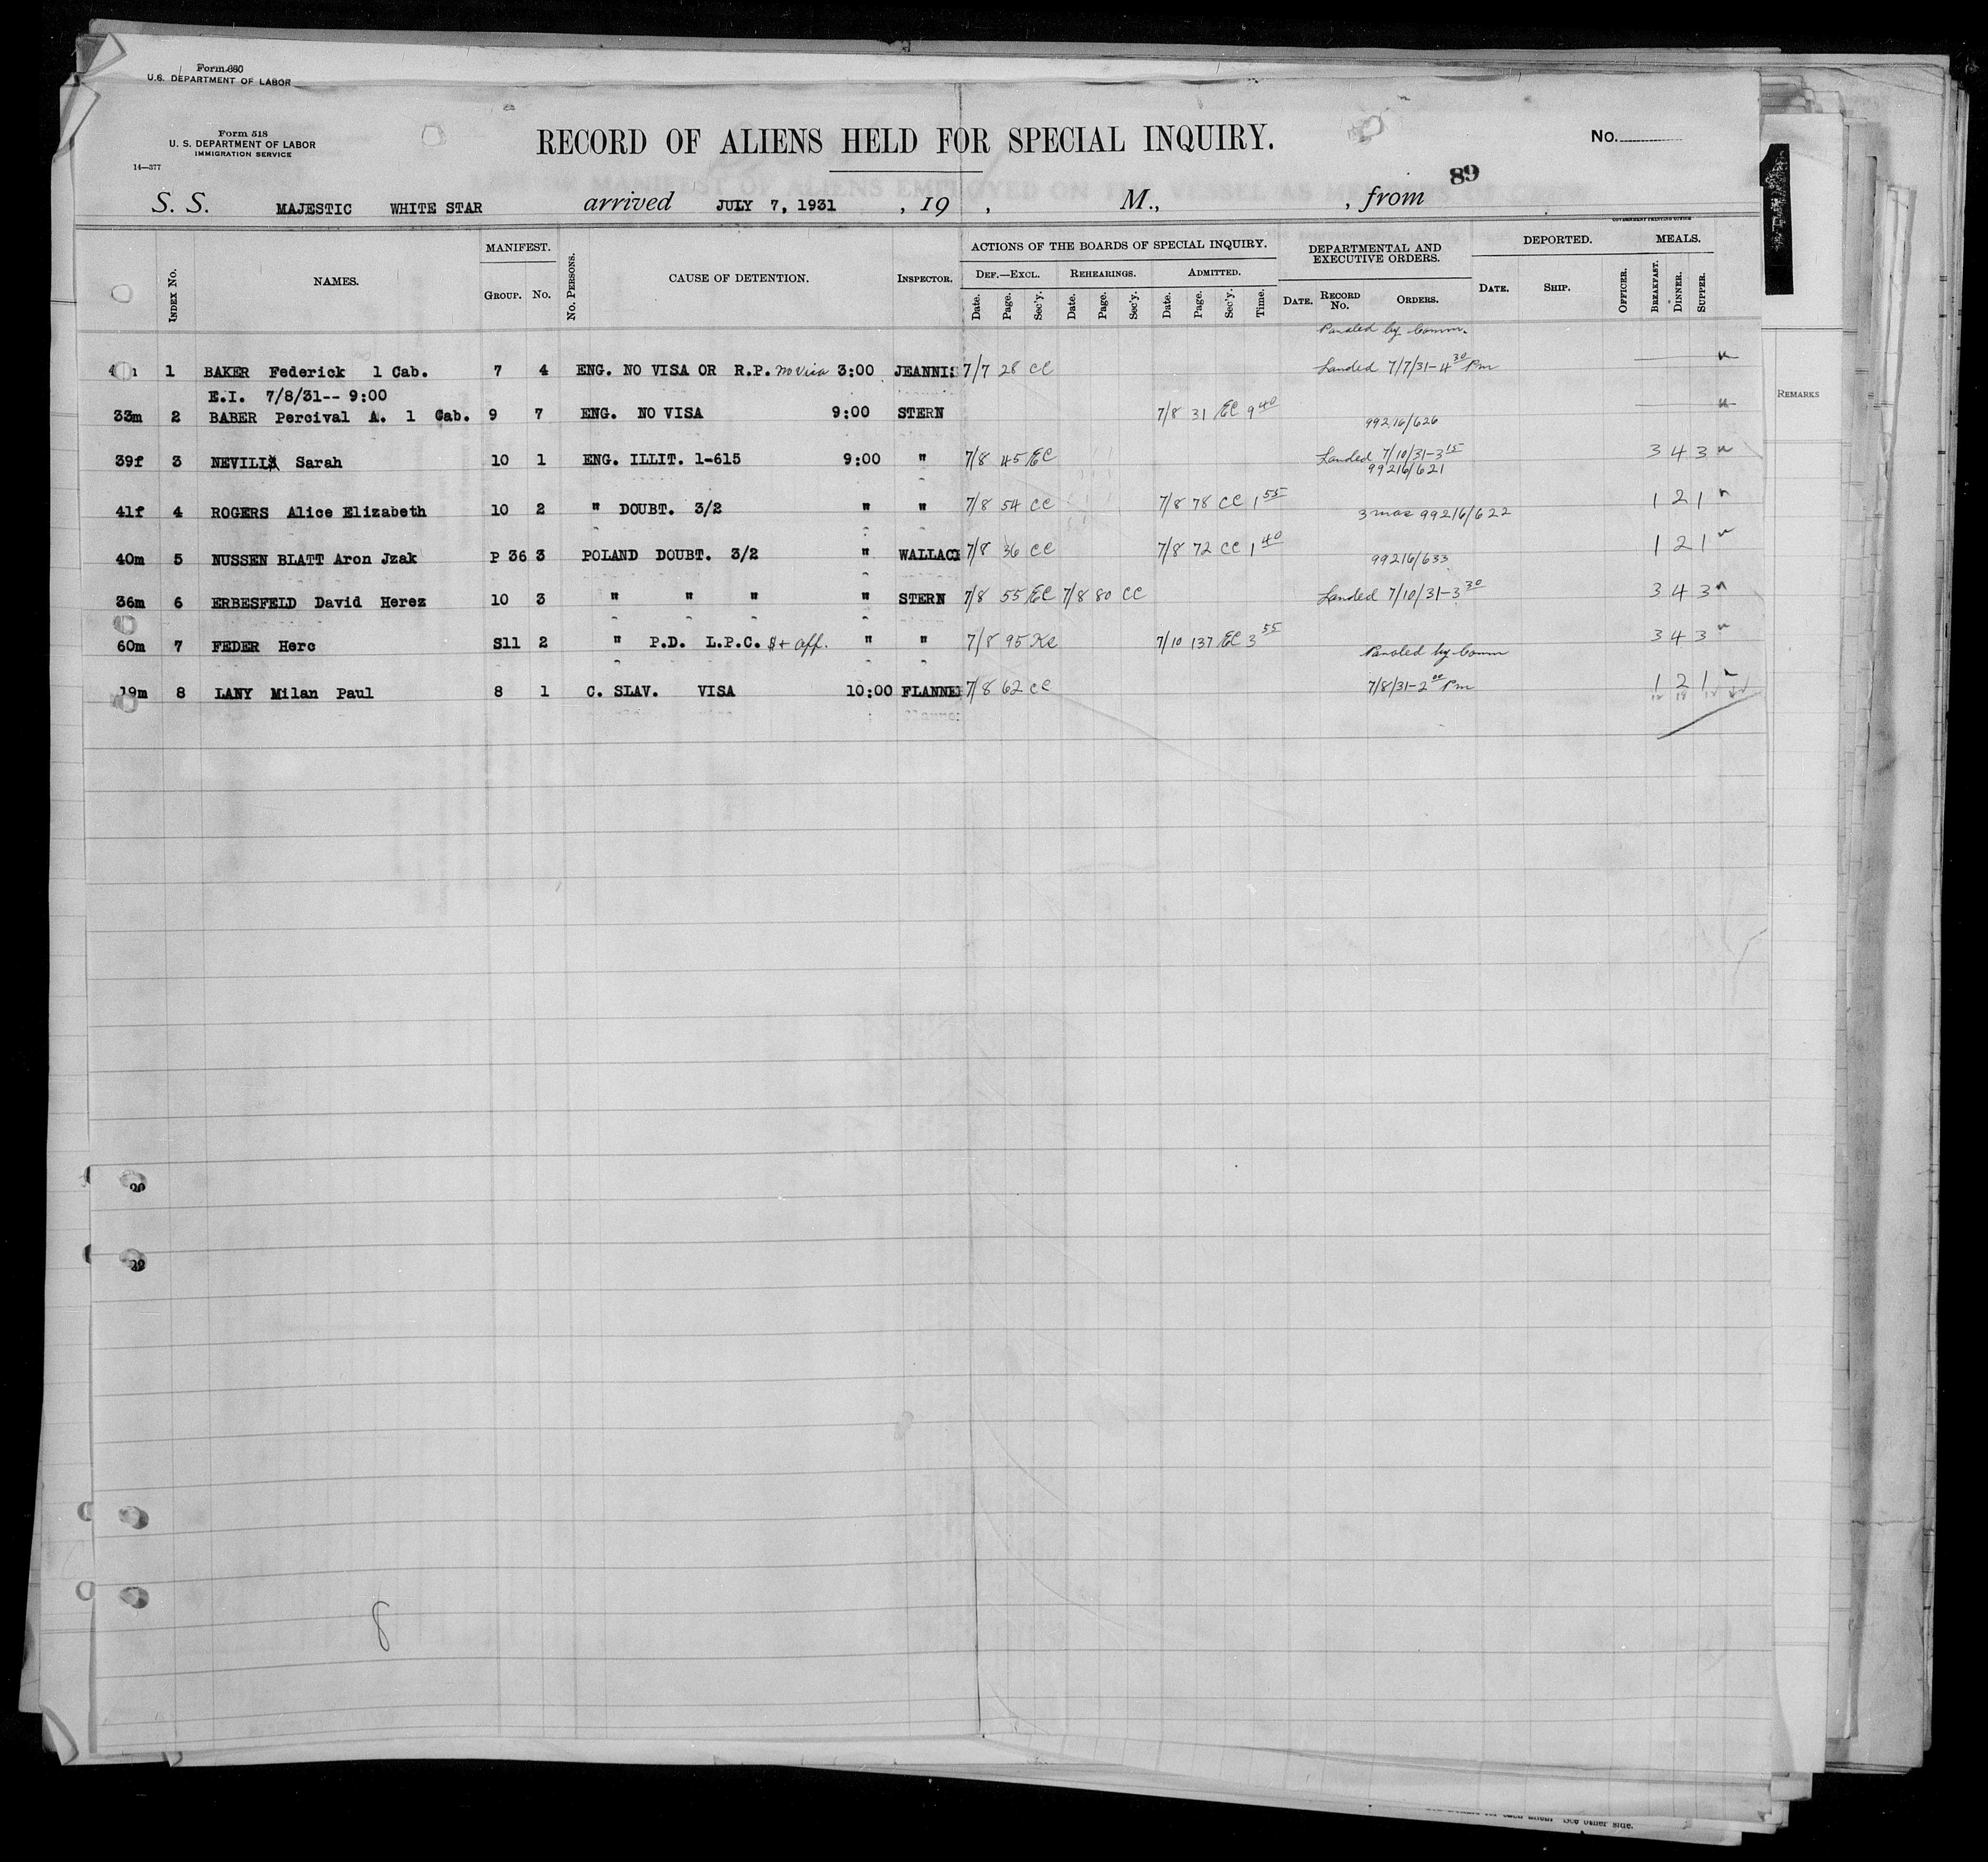 Form 680
U.S. DEPARTMENT OF LABOR
Form 518
U. S. DEPARTMENT OF LABOR
IMMIGRATION SERVICE
14—377
RECORD OF ALIENS HELD FOR SPECIAL INQUIRY.
No.
89
S. S. MAJESTIC WHITE STAR arrived JULY 7, 1931 , 19 , M., , from
GOVERNMENT PRINTING OFFICE
INDEX No. NAMES. MANIFEST. GROUP. No. No. PERSONS. CAUSE OF DETENTION. INSPECTOR. ACTIONS OF THE BOARDS OF SPECIAL INQUIRY. DEPARTMENTAL AND EXECUTIVE ORDERS. DEPORTED. MEALS.
DEF.—EXCL. REHEARINGS. ADMITTED.
Date. Page. Sec'y. Date. Page. Sec'y. Date. Page. Sec'y. Time. DATE. RECORD No. ORDERS. DATE. SHIP. OFFICER. BREAKFAST. DINNER. SUPPER.
REMARKS
Paroled by Comm.
1 BAKER Federick 1 Cab. 7 4 ENG. NO VISA OR R.P. no visa 3:00 JEANNIS 7/7 28 CC Landed 7/7/31-4 30 Pm
E.I. 7/8/31-- 9:00
33m 2 BABER Percival A. 1 Cab. 9 7 ENG. NO VISA 9:00 STERN 7/8 31 EC 9 40
99216/626
39f 3 NEVILIS Sarah 10 1 ENG. ILLIT. 1-615 9:00 " 7/8 45 EC Landed 7/10/31-3 15 3 4 3
99216/621
41f 4 ROGERS Alice Elizabeth 10 2 " DOUBT. 3/2 " " 7/8 54 CC 7/8 78 CC 1 55 1 2 1
3 mos 99216/622
40m 5 NUSSEN BLATT Aron Jzak P 36 3 POLAND DOUBT. 3/2 " WALLACE 7/8 36 CC 7/8 72 CC 1 40 1 2 1
99216/633
36m 6 ERBESFELD David Herez 10 3 " " " " STERN 7/8 55 EC 7/8 80 CC Landed 7/10/31-3 30 3 4 3
60m 7 FEDER Herc S11 2 " P.D. L.P.C. $+ aff. " " 7/8 95 KC 7/10 137 EC 3 55 3 4 3
Paroled by Comm
19m 8 LANY Milan Paul 8 1 C. SLAV. VISA 10:00 FLANNE 7/8 62 CC 7/8/31-2 00 Pm 1 2 1
20
22
8
See other side.